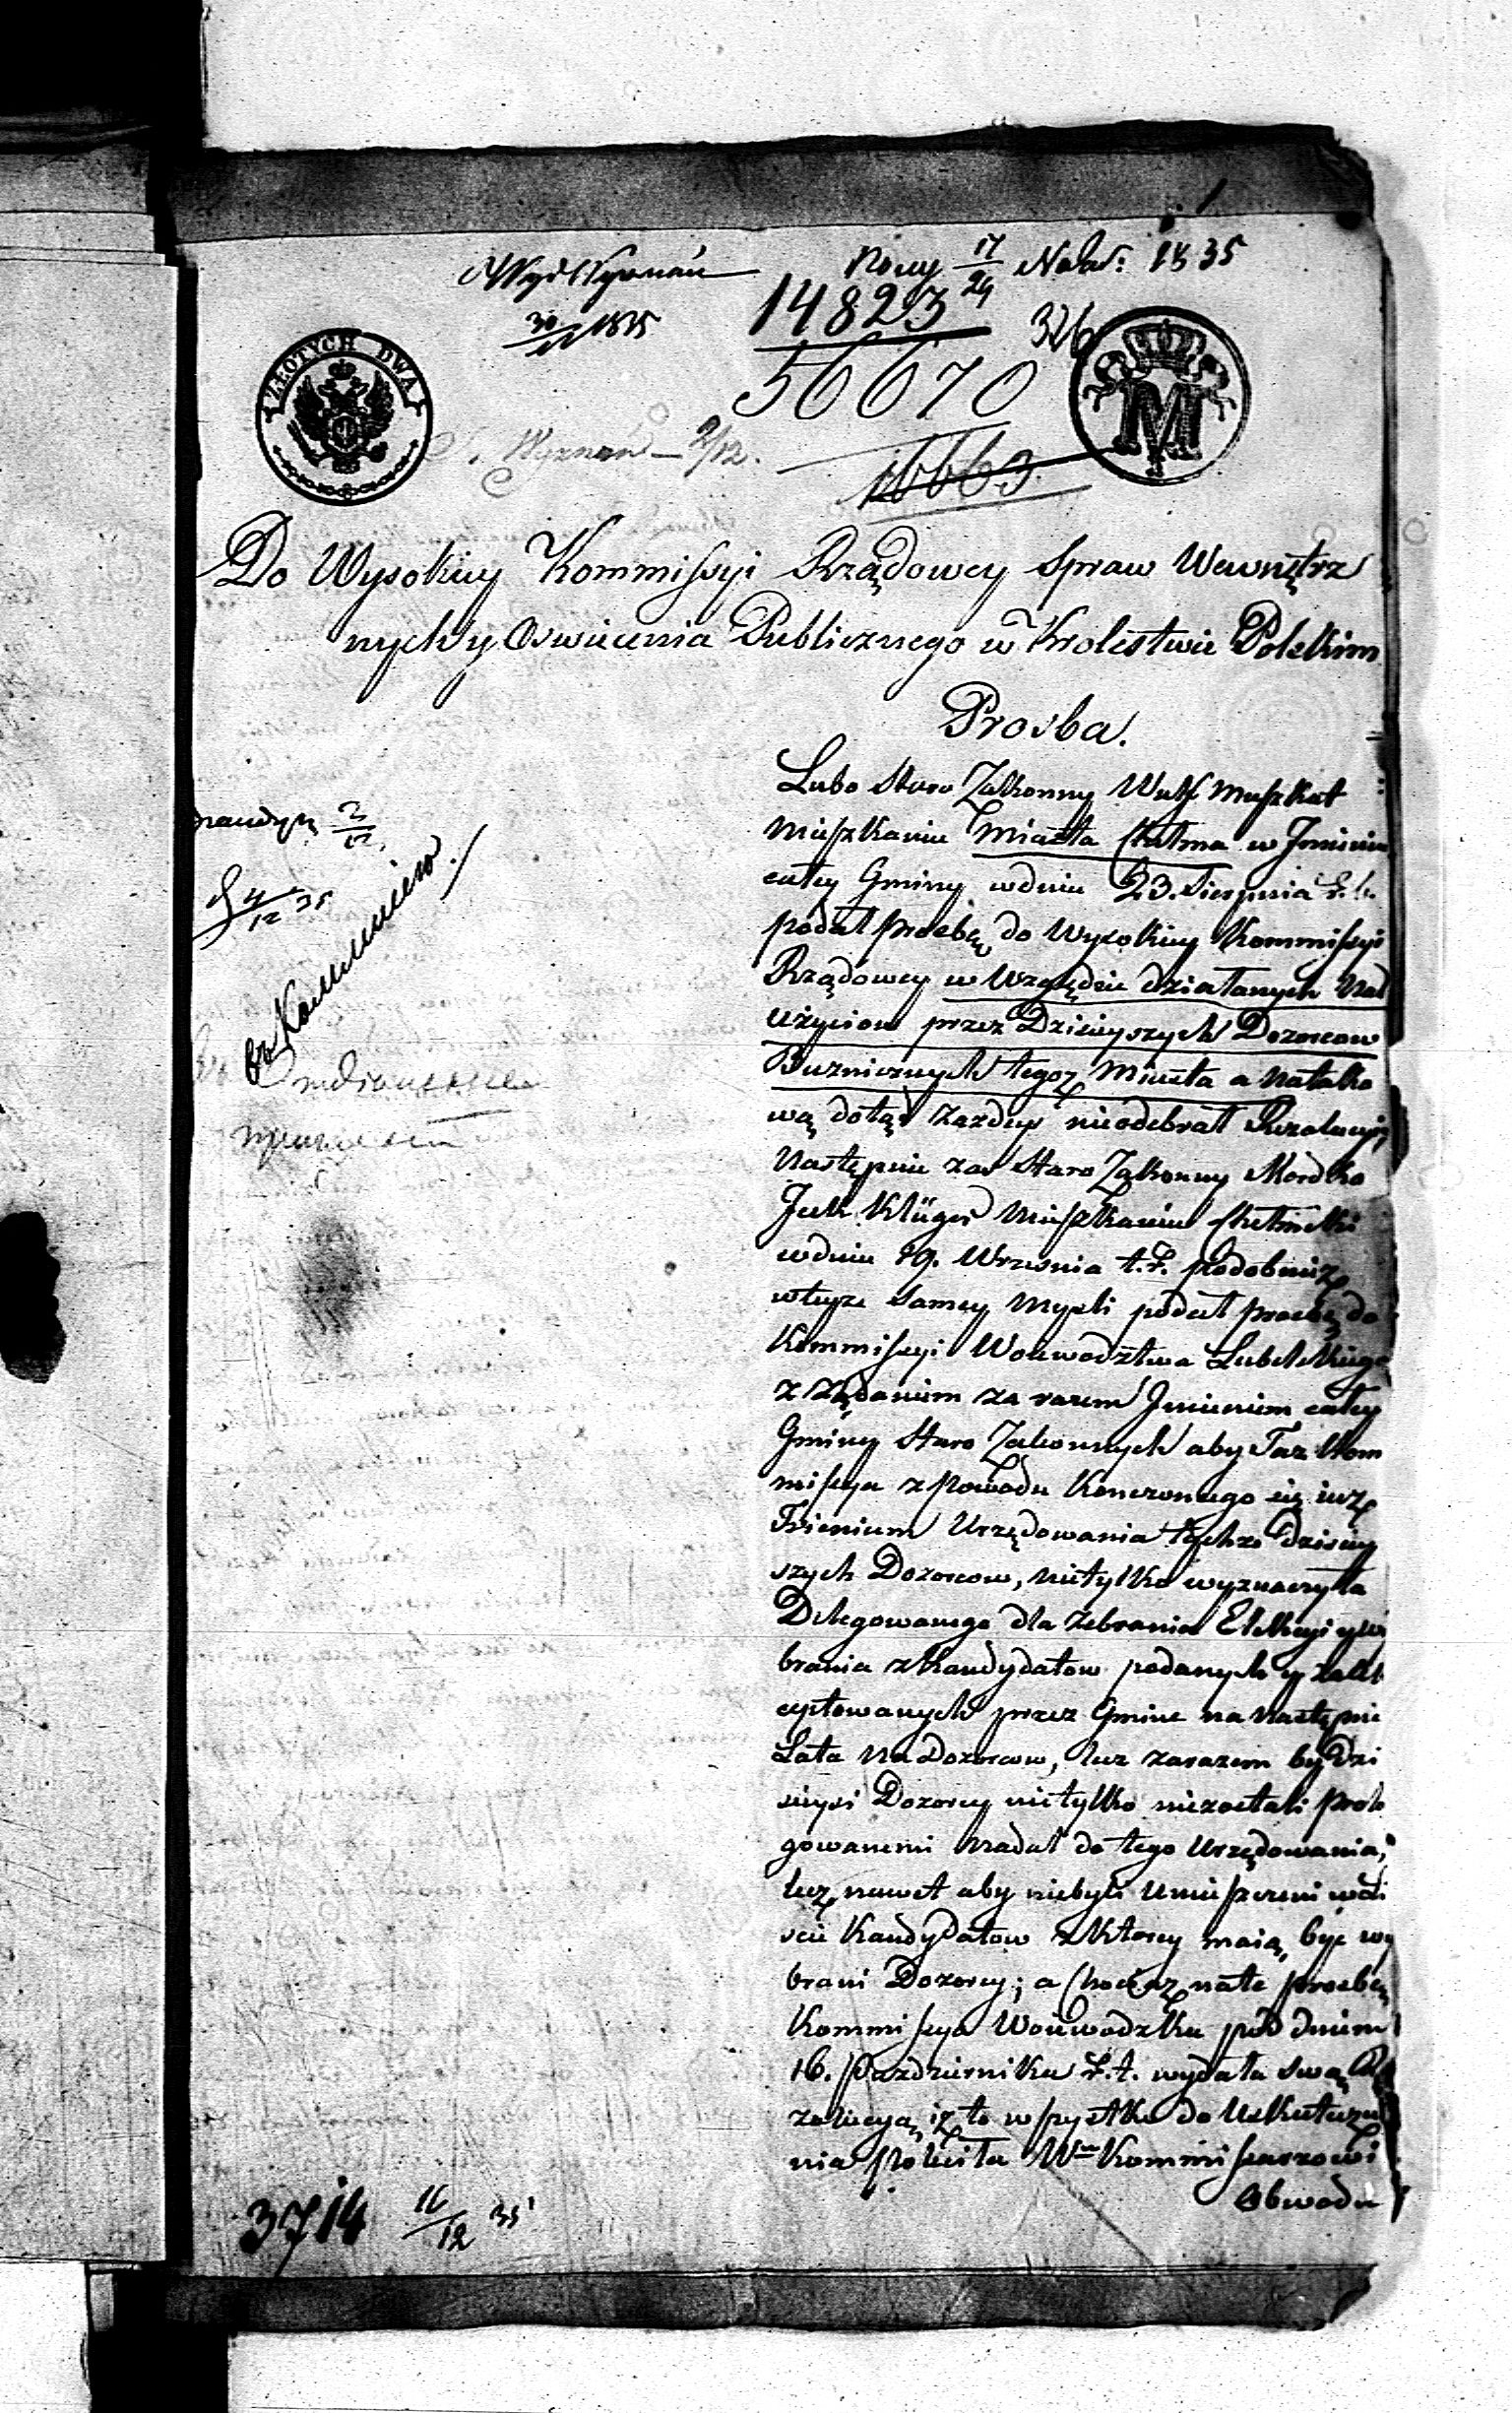 Nowy 17/29 1835
14823
30/11 1835
326
56670
ZŁOTYCH DWA
Wyznań 2/12.
16663.
Do Wysokiey Kommissyi Rządowey Spraw Wewnętrz
nych y Oswiecenia Publicznego w Krolestwie Polskim
Prosba.
Lubo Staro Zakonny Wulf Muszkat
Mieszkaniec Miasta Chełma w Jmieniu
całey Gminy w dniu 23. Sierpnia r. b.
podał prosbę do Wysokiey Kommissyi
Rządowey w Względzie działanych Nad
użyciow przez Dzisieyszych Dozorcow
Buzniczných tegoz Miasta a Natako
wą dotąd żazdney nieodebrał Rezolucyi,
Następnie zas Staro Zakonny Mordko
Jcek Klüger Mieszkaniec Chełmski
w dniu 19. Wrzesnia t. r. podobniez
wteyze samey Mysli podał prosbę do
Kommissyi Woiewodztwa Lubelskiego
z Żądaniem za razem Jmieniem całey
Gminy Staro Zakonnych aby Taz Kom
missya z powodu Konczonego się iuz
Trienium Urzędowania tychze Dzisiey
szych Dozorcow, nietylko wyznaczyła
Delegowanego dla Zebrania Elekcyi y wy
brania z Kandydatow podanych y zak
ceptowanych przez Gmine na Następnie
Lata Na Dozorcow, lecz zarazem by Dzi
sieysi Dozorcy nietylko niezostali prolo
gowanemi Nadal do tego Urzędowania,
lecz nawet aby niebyli Umieszczeni w Li
scie Kandydatow z Ktorey maią być wy
brani Dozorcy; a Chociaz nate prosbę
Kommissya Woiewodzka pod dniem
16. Pazdziernika r. t. wydała swą Re
zolucyą iz to wszystko do Uskutecznie
nia poleciła Wmu Kommissarzowi
Obwodu
4/12 35
3714 16/12 35